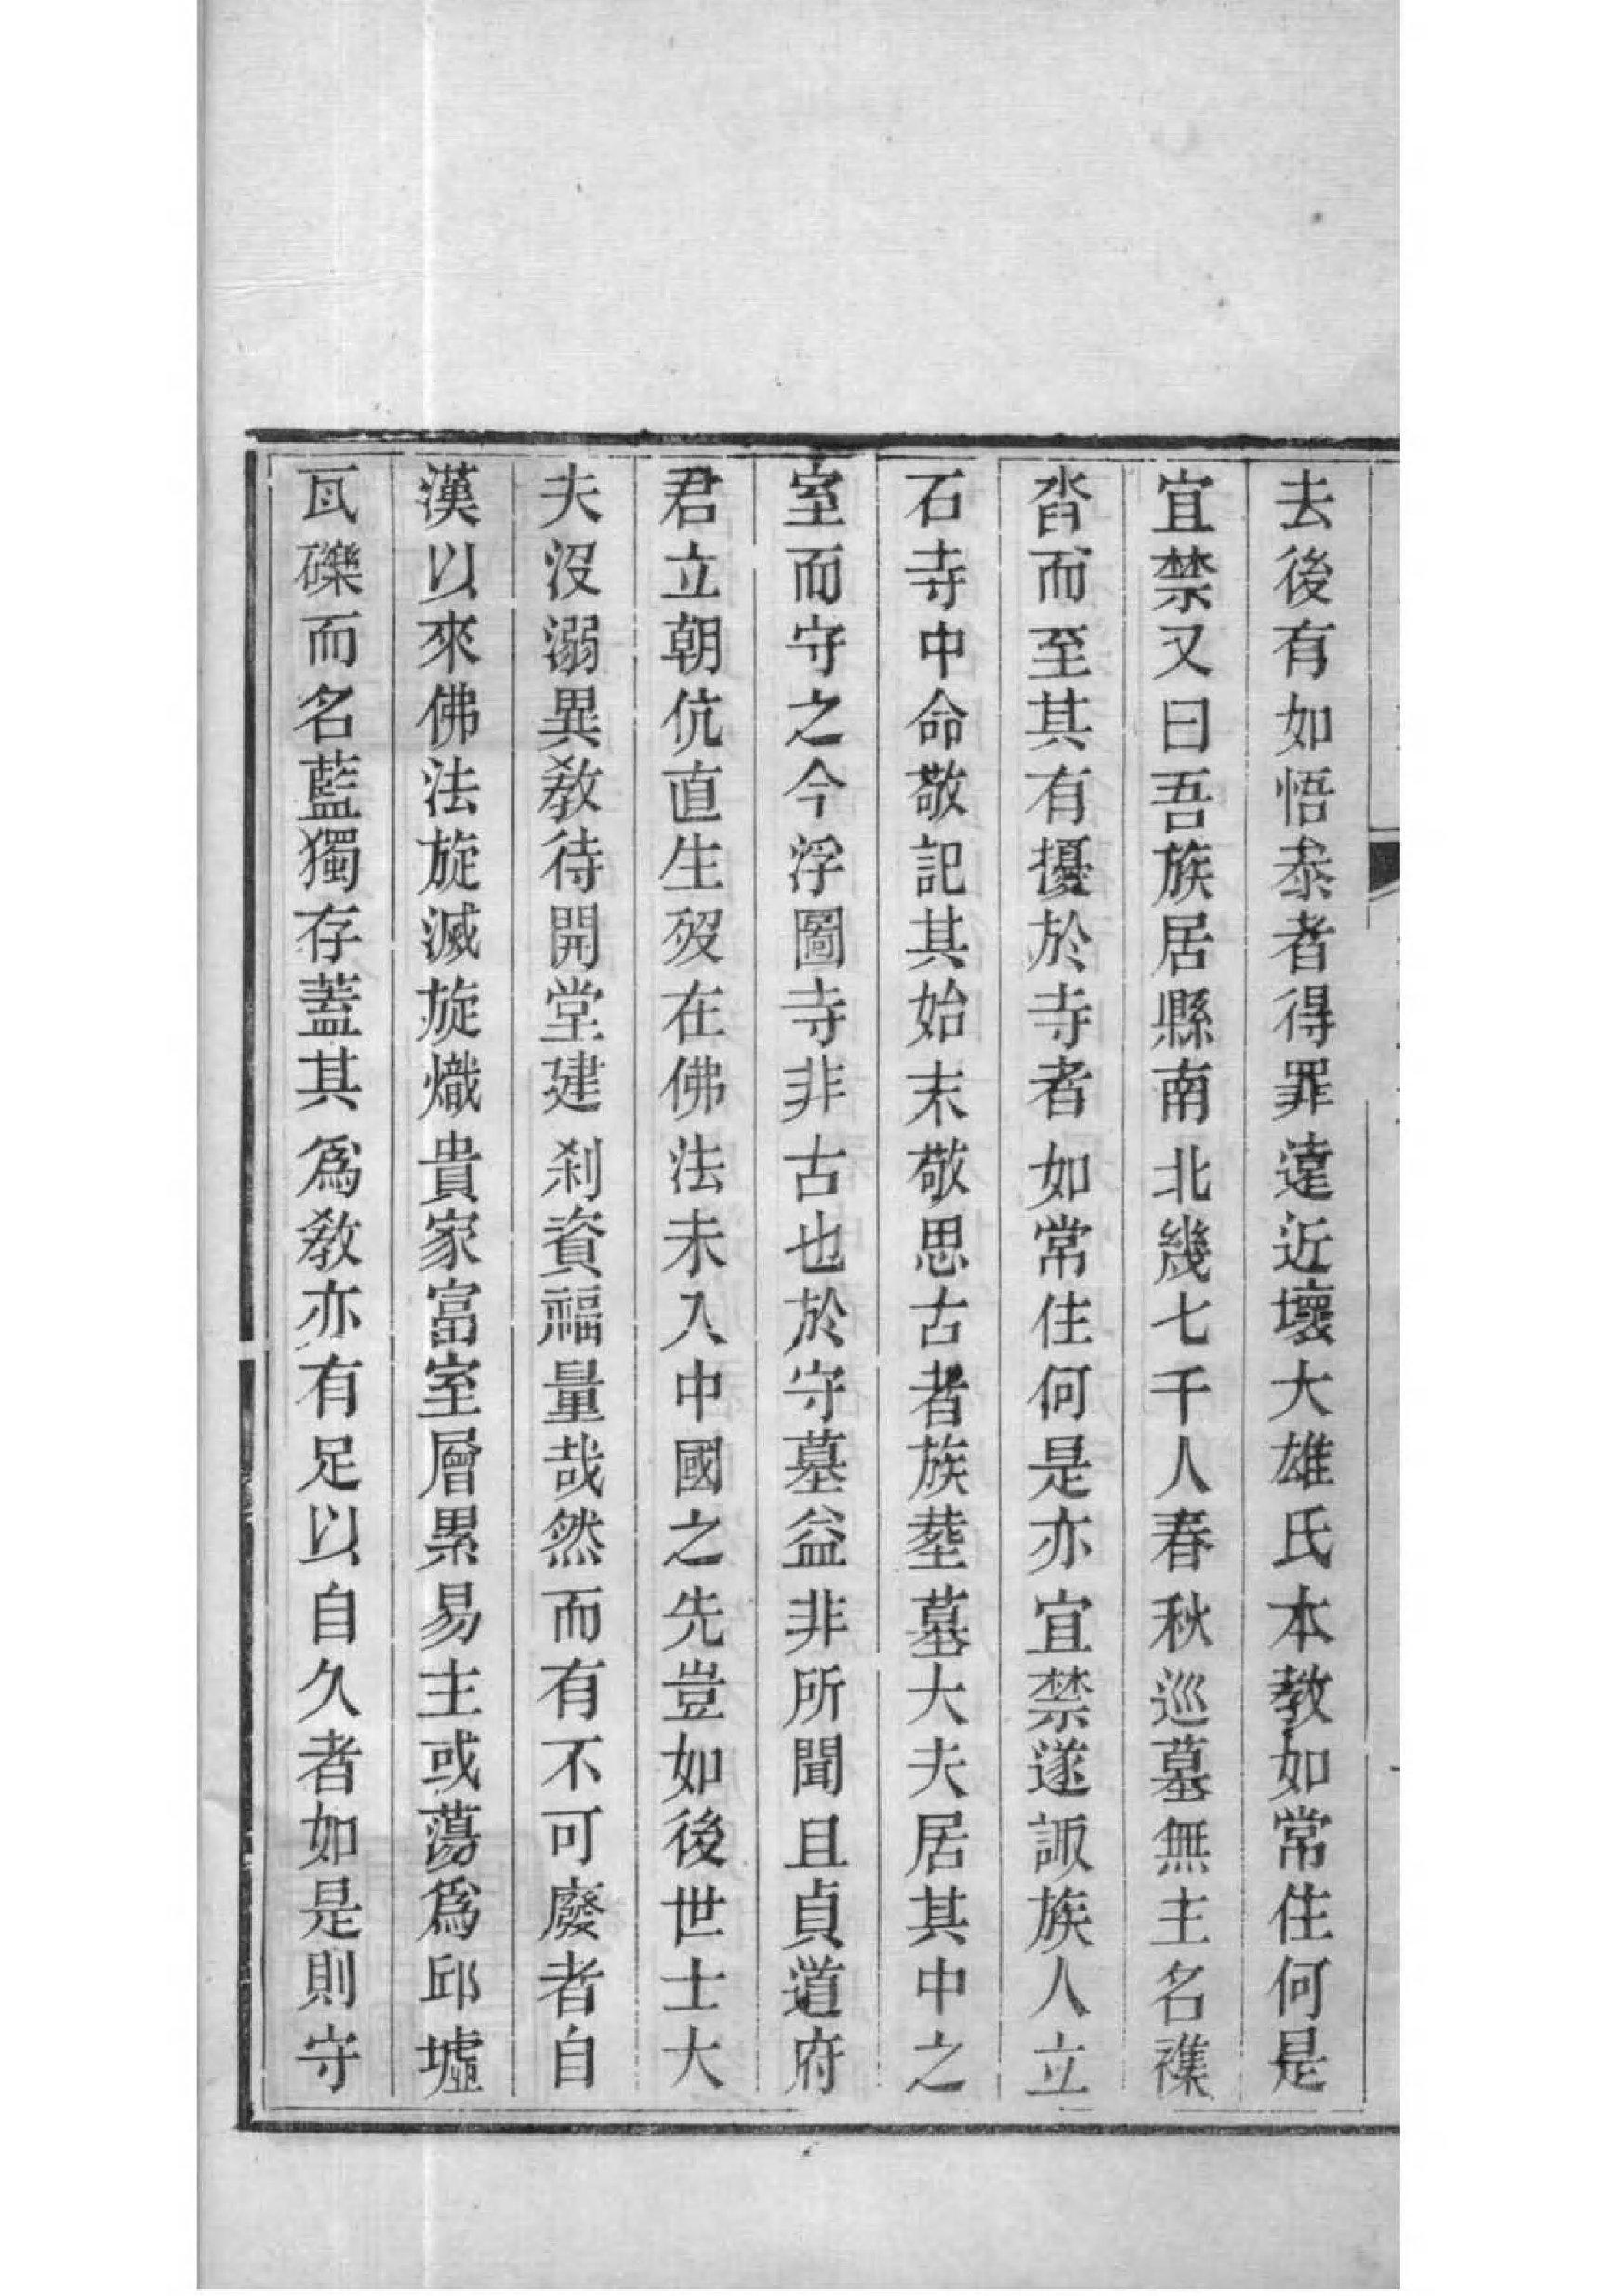 去後有如悟泰者得罪遠近壞大雄氏本教如常住何是
宜禁又曰吾族居縣南北幾七千人春秋巡墓無主名襍
沓而至其有擾於寺者如常住何是亦宜禁遂諏族人立
石寺中命敬記其始末敬思古者族葬墓大夫居其中之
室而守之今浮圖寺非古也於守墓益非所聞且貞道府
君立朝伉直生歿在佛法未入中國之先豈如後世士大
夫沒溺異敎待開堂建刹資福量哉然而有不可廢者自
漢以來佛法旋滅旋熾貴家富室層累易主或蕩爲邱墟
瓦礫而名藍獨存蓋其爲敎亦有足以自久者如是則守